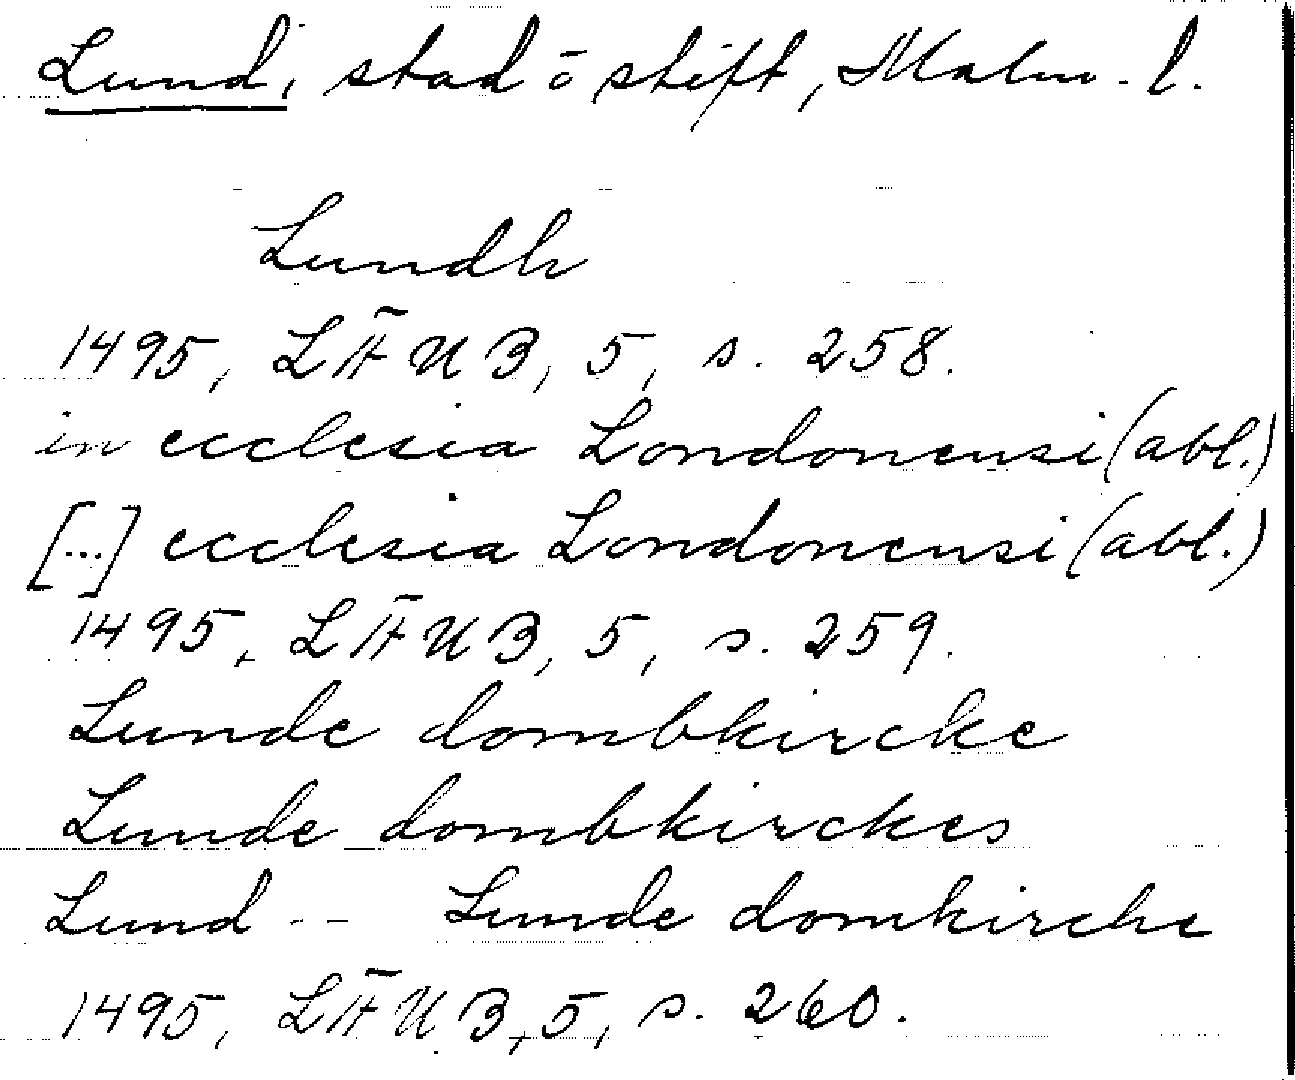 Lund, stad o stift, Malm. l.
Lundh
1495, LÄUB, 5, s. 258.
in ecclesia Londonensi (abl.)
[...] ecclesia Londonensi (abl.)
1495, LÄUB, 5, s. 259.
Lunde dombkircke
Lunde dombkirckes
Lund -- Lunde domkirche
1495, LÄUB, 5, s. 260.